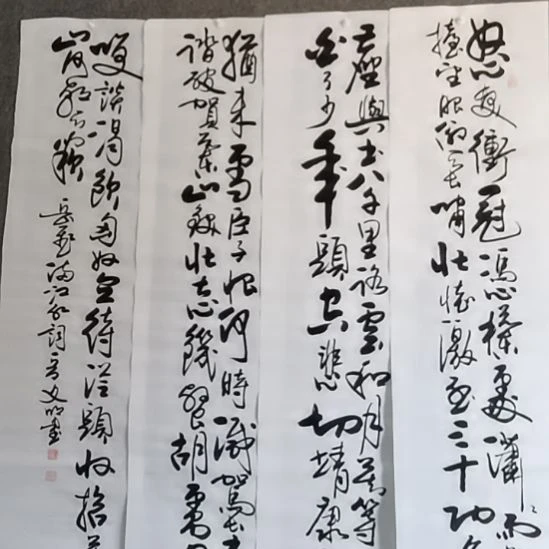 怒髮衝冠憑欄處瀟〻雨
擡望眼仰天長嘯壯懷激烈三十功名
塵與土八千里路雲和月莫等
白了少年頭空悲切靖康
猶未雪臣子恨何時滅駕長
踏破賀蘭山缺壯志饑餐胡虜
笑談渴飲匈奴血待從頭收拾
山河朝天闕
岳飛滿江紅詞